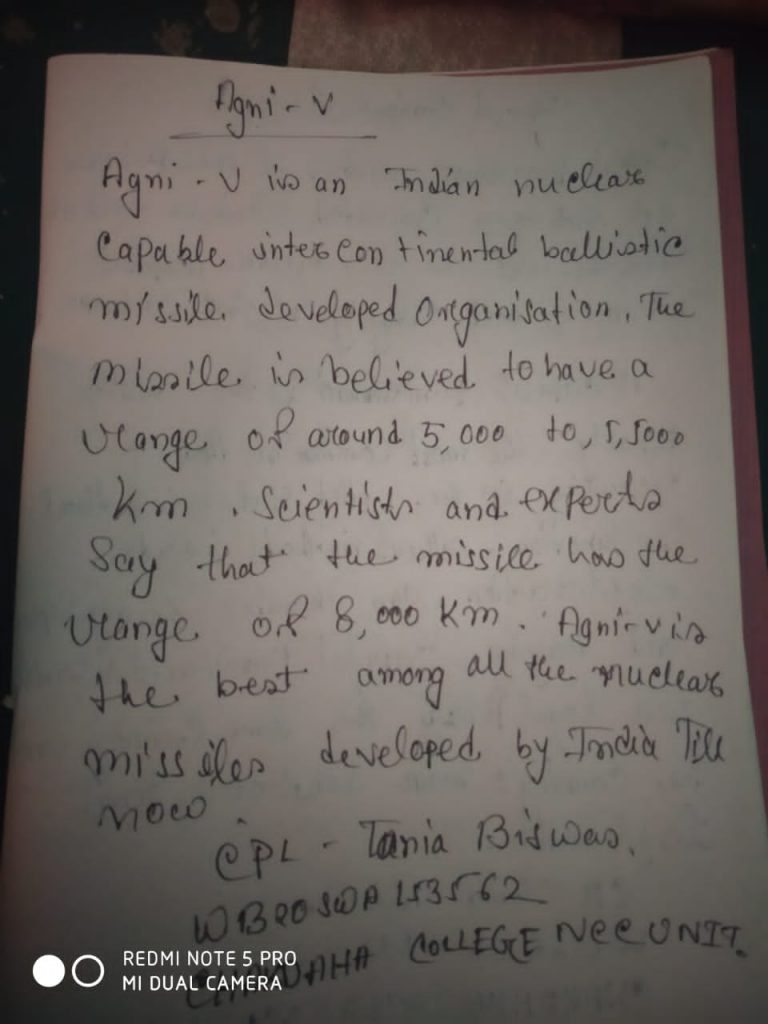 Agni - V
Agni - V is an Indian nuclear
Capable intercontinental ballistic
missile developed Organisation. The
missile is believed to have a
range of around 5,000 to, 5,5000
Km. Scientists and experts
Say that the missile has the
range of 8,000 Km. Agni-v is
the best among all the nuclear
missiles developed by India Till
now.
CPL - Tania Biswas.
WB20SWA153562
CHAKDAHA COLLEGE NCC UNIT.
REDMI NOTE 5 PRO
MI DUAL CAMERA